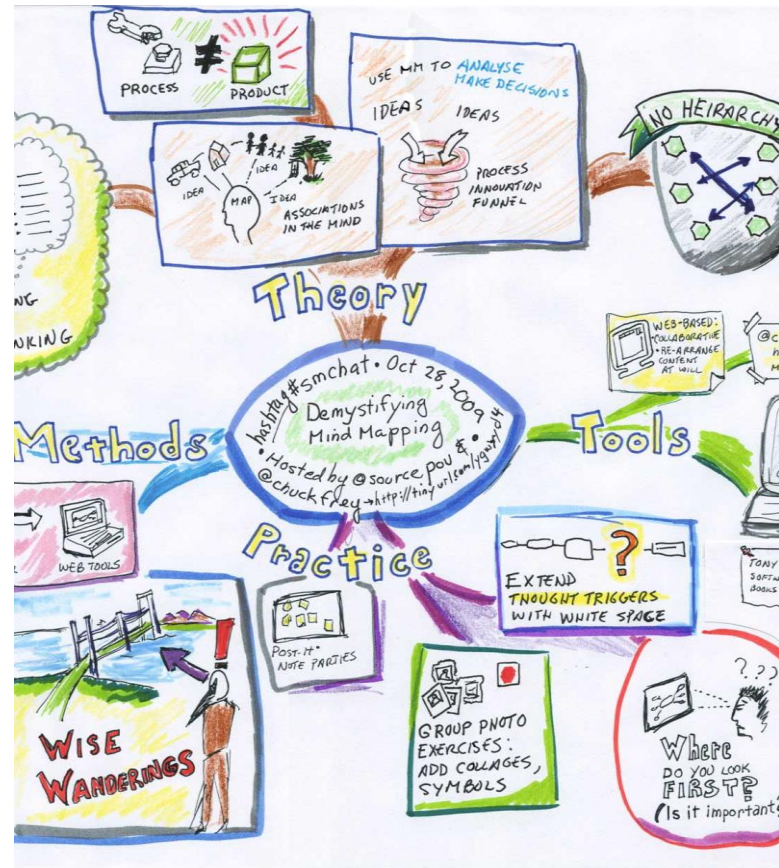 PROCESS
≠
PRODUCT
USE MM TO ANALYSE
MAKE DECISIONS
IDEAS IDEAS
PROCESS
INNOVATION
FUNNEL
IDEA
MAP
IDEA
IDEA
ASSOCIATIONS
IN THE MIND
NO HEIRARCHY
NG
NKING
Theory
WEB-BASED:
•COLLABORATIVE
•RE-ARRANGE
CONTENT
AT WILL
hashtag #smchat • Oct 28, 2009 •
Demystifying
Mind Mapping
• Hosted by @sourcepov &
@chuckfrey → http://tinyurl.com/
Methods
Tools
WEB TOOLS
Practice
POST-IT
NOTE PARTIES
?
EXTEND
THOUGHT TRIGGERS
WITH WHITE SPACE
TONY
BOOKS
!
WISE
WANDERINGS
GROUP PHOTO
EXERCISES:
ADD COLLAGES,
SYMBOLS
???
Where
DO YOU LOOK
FIRST?
(Is it important?